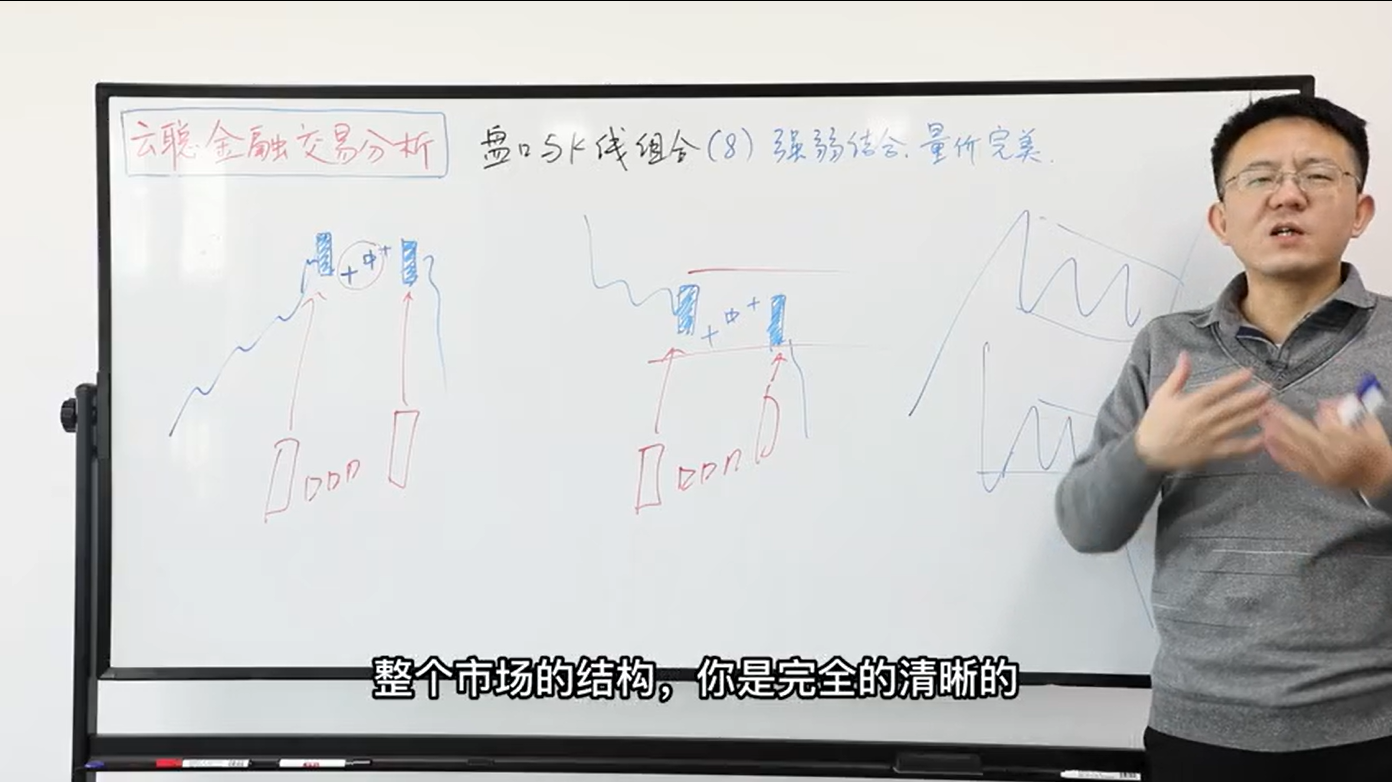 云聪金融交易分析
盘口与K线组合(8)强弱结合.量价完美.
整个市场的结构，你是完全的清晰的